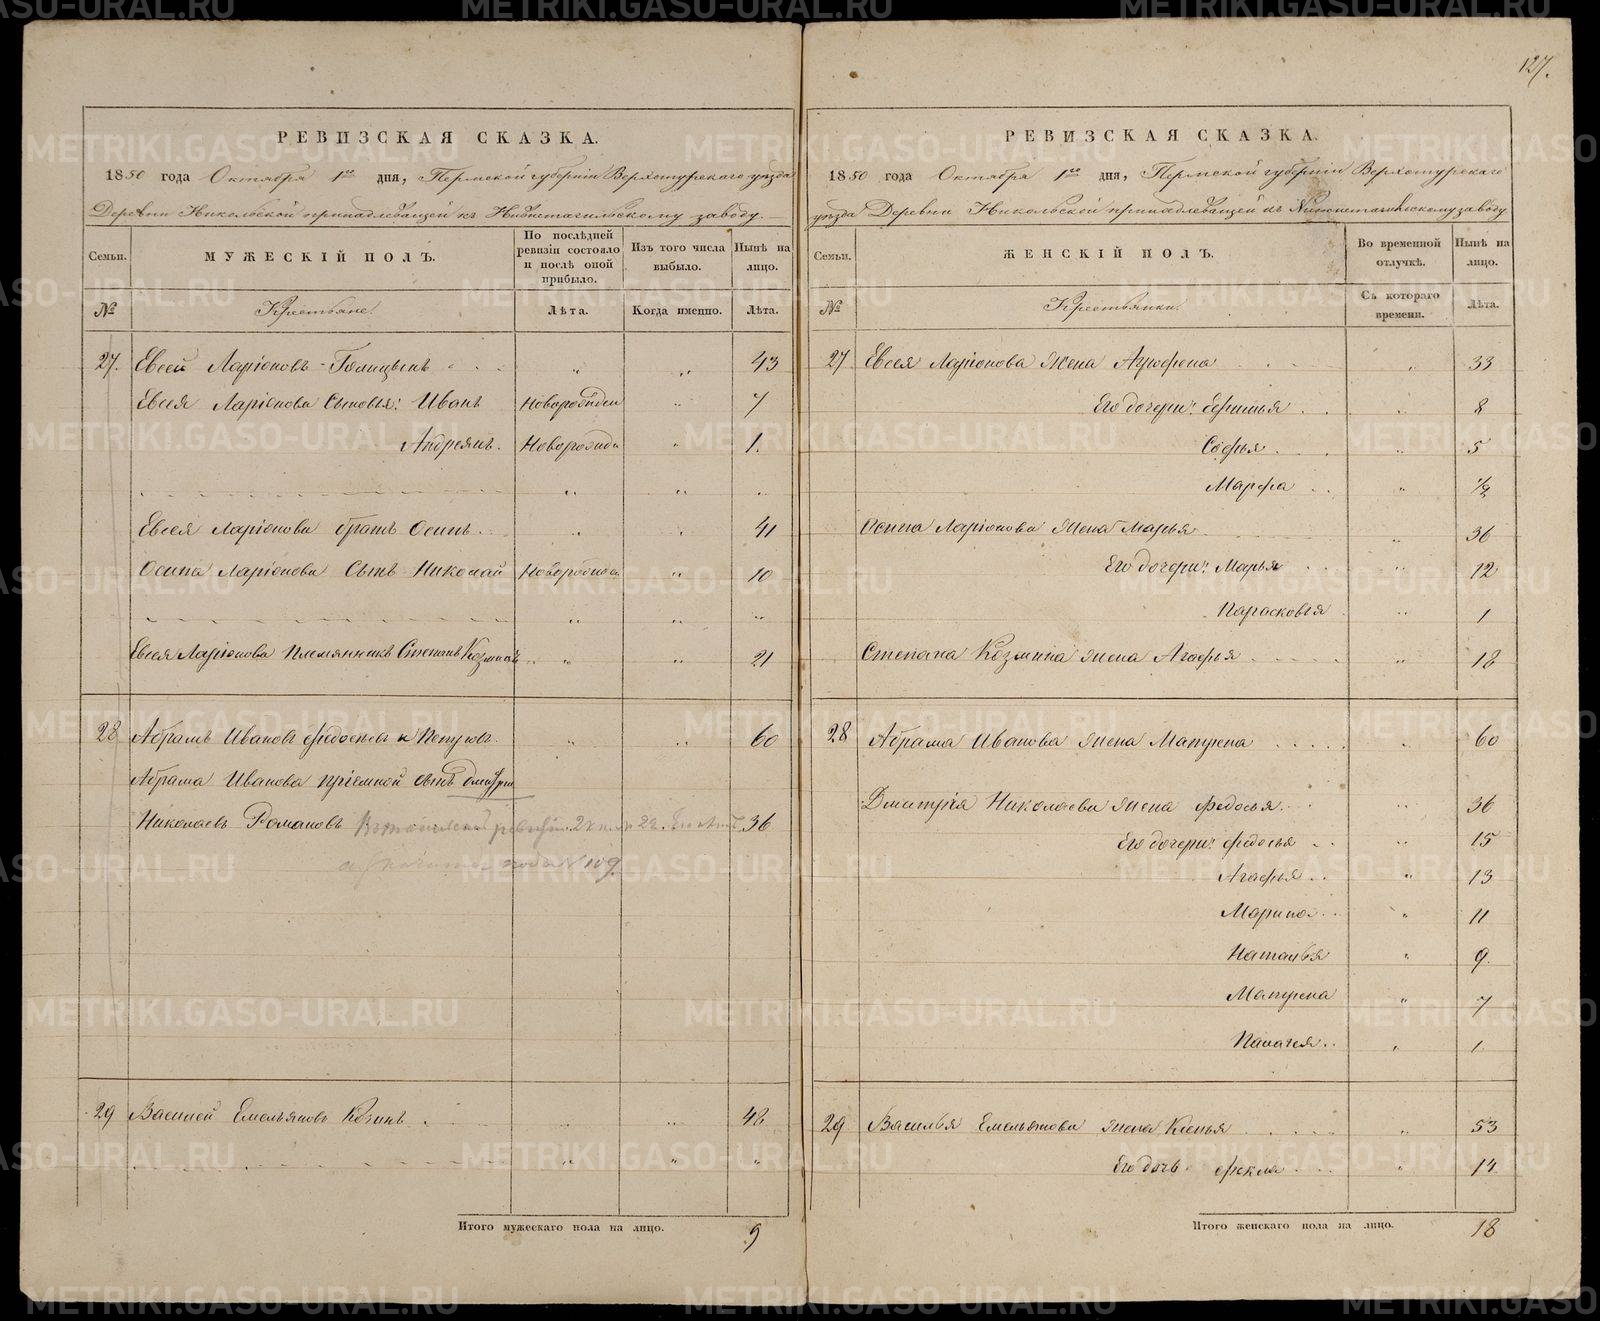 127.
РЕВИЗСКАЯ СКАЗКА.
1850 года Октября 1го дня, Пермской губерніи Верхотурскаго уѣзда
Деревни Никольской принадлежащей къ Нижнетагильскому заводу.
Семьи.
МУЖЕСКІЙ ПОЛЪ.
По послѣдней ревизіи состояло и послѣ оной прибыло.
Изъ того числа выбыло.
Нынѣ на лицо.
№
Крестьяне.
Лѣта.
Когда именно.
Лѣта.
27. Евсей Ларіоновъ Голицынъ „ „ 43
Евсея Ларіонова Сыновья: Иванъ Новорожден „ 7
Андреянъ. Новорожде „ 1.
„ „ „
Евсея Ларіонова братъ Осипъ. „ „ 41
Осипа Ларіонова Сынъ Николай Новорожден „ 10
„ „ „
Евсея Ларіонова племянникъ Степанъ Козминъ „ „ 21
28 Абрамъ Ивановъ Федосѣевъ и Петровъ. „ „ 60
Абрама Иванова пріемной сынъ Дмитри
Николаевъ Романовъ 36
№ 109.
29 Василей Емельяновъ Козинъ „ „ 48
„ „ „
Итого мужескаго пола на лицо. 9
РЕВИЗСКАЯ СКАЗКА.
1850 года Октября 1го дня, Пермской губерніи Верхотурскаго
уѣзда Деревни Никольской принадлежащей къ Нижнетагильскому заводу
Семьи.
ЖЕНСКІЙ ПОЛЪ.
Во временной отлучкѣ.
Нынѣ на лицо.
№
Крестьянки.
Съ котораго времени.
Лѣта.
27 Евсея Ларіонова жена Аграфена „ 33
Его дочери: „ 8
Софья „ 5
Марфа „ 1/2
Осипа Ларіонова жена Марья „ 36
Его дочери: Марья „ 12
Парасковья „ 1
Степана Козмина жена Агафья „ 18
28 Абрама Иванова жена Матрена „ 60
Дмитрія Николаева жена Федосья „ 36
Его дочери: Федосья „ 15
Агафья „ 13
Марина „ 11
Наталья „ 9.
Матрена „ 7
Палагея „ 1
29 Василья Емельянова жена Ксенья „ 53
Его дочь Фекла „ 14
Итого женскаго пола на лицо. 18
METRIKI.GASO-URAL.RU